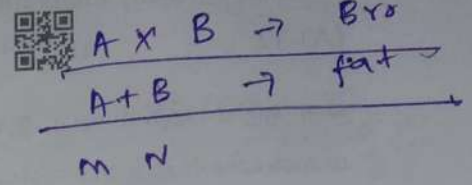 A × B → Bro
A + B → fiat
M N